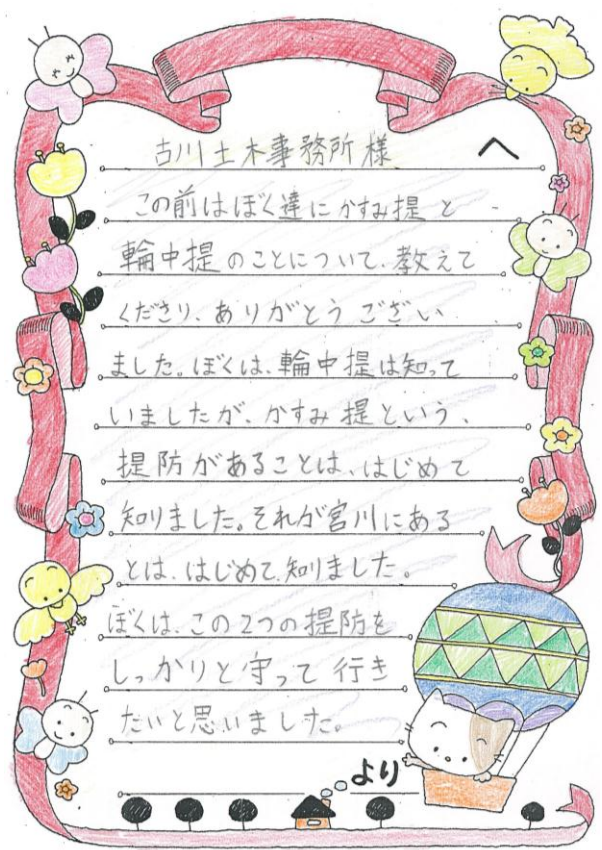 古川土木事務所様 へ
この前はぼく達にかすみ提と
輪中提のことについて、教えて
くださり、ありがとうござい
ました。ぼくは、輪中提は知って
いましたが、かすみ提という、
提防があることは、はじめて
知りました。それが宮川にある
とは、はじめて、知りました。
ぼくは、この2つの提防を
しっかりと守って行き
たいと思いました。
より